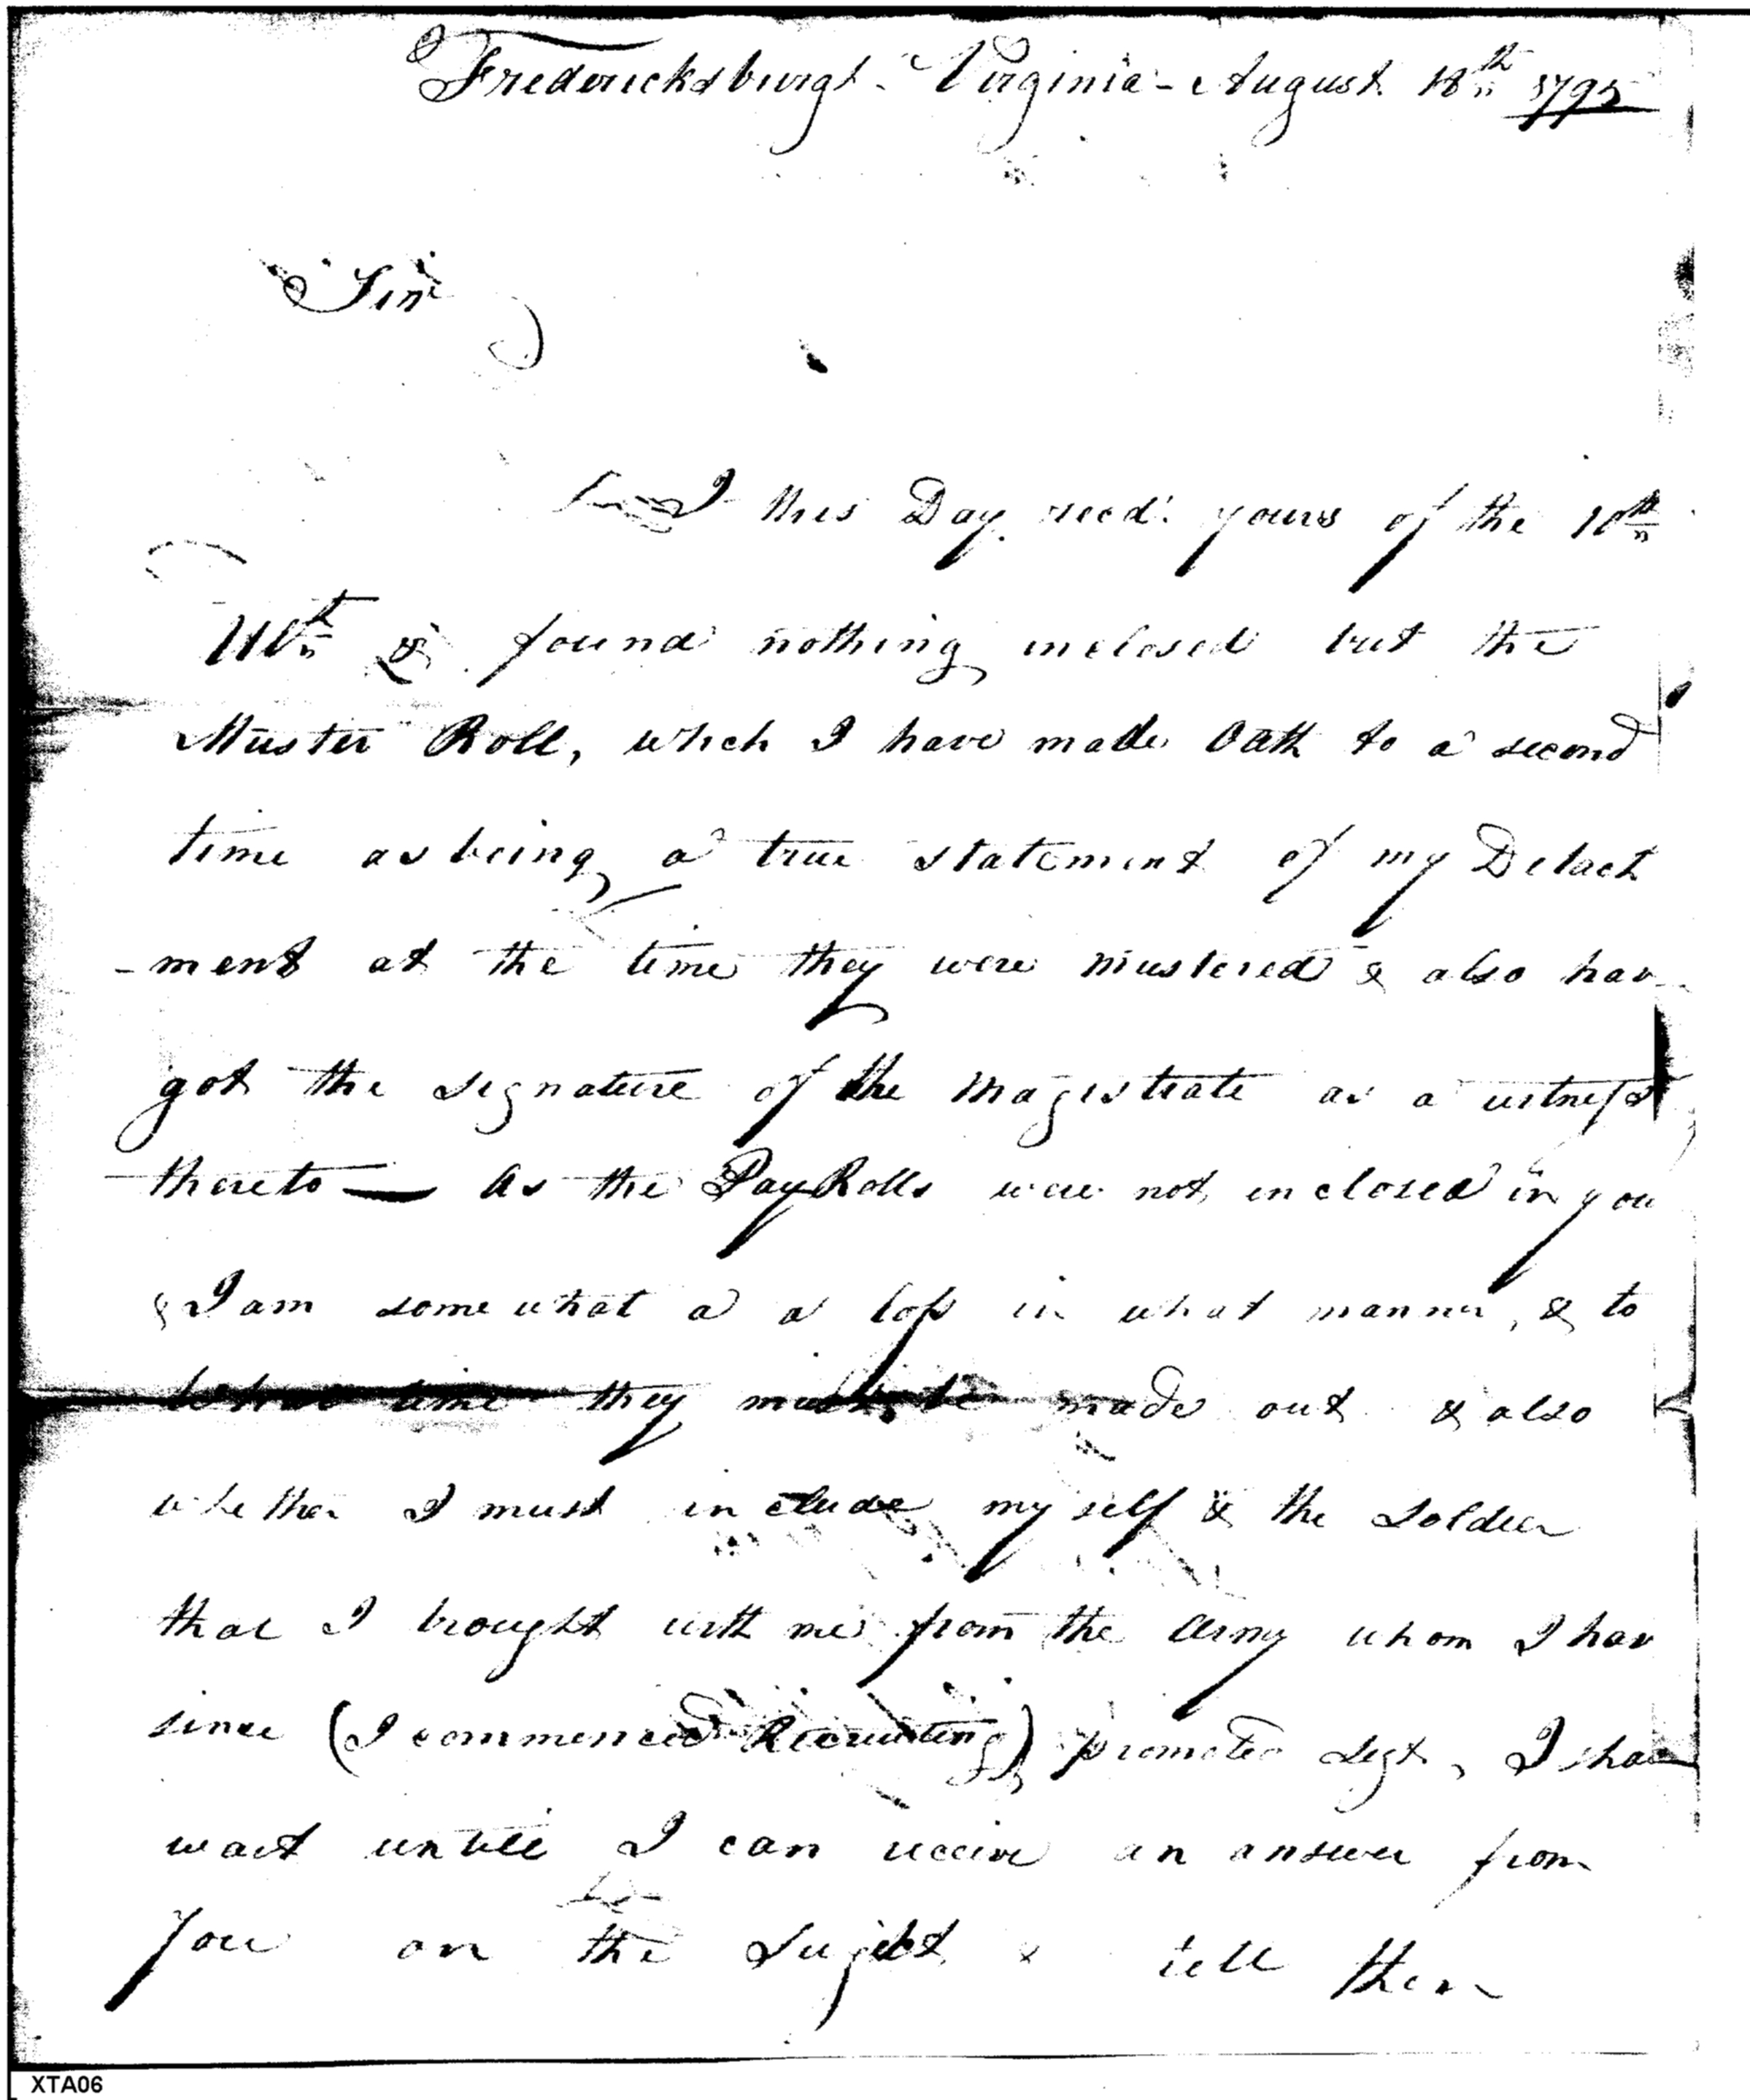 Fredericksburgh - Virginia - August 18th 1795
Sir
I this Day recd. yours of the 10th
& found nothing inclosed but the
Muster Roll, which I have made Oath to a second
time as being a true statement of my Detach
-ment at the time they were mustered & also hav
got the signature of the Magistrate as a witness
thereto — As the Pay Rolls were not inclosed in you
I am some what a a loss in what manner, & to
what time they must be made out & also
whether I must include my self & the Soldier
that I brought with me from the Army whom I hav
since (I commenced Recruiting) promoted Segt, I shall
wait untill I can receive an answer from
you on the Sujebt & till then
XTA06